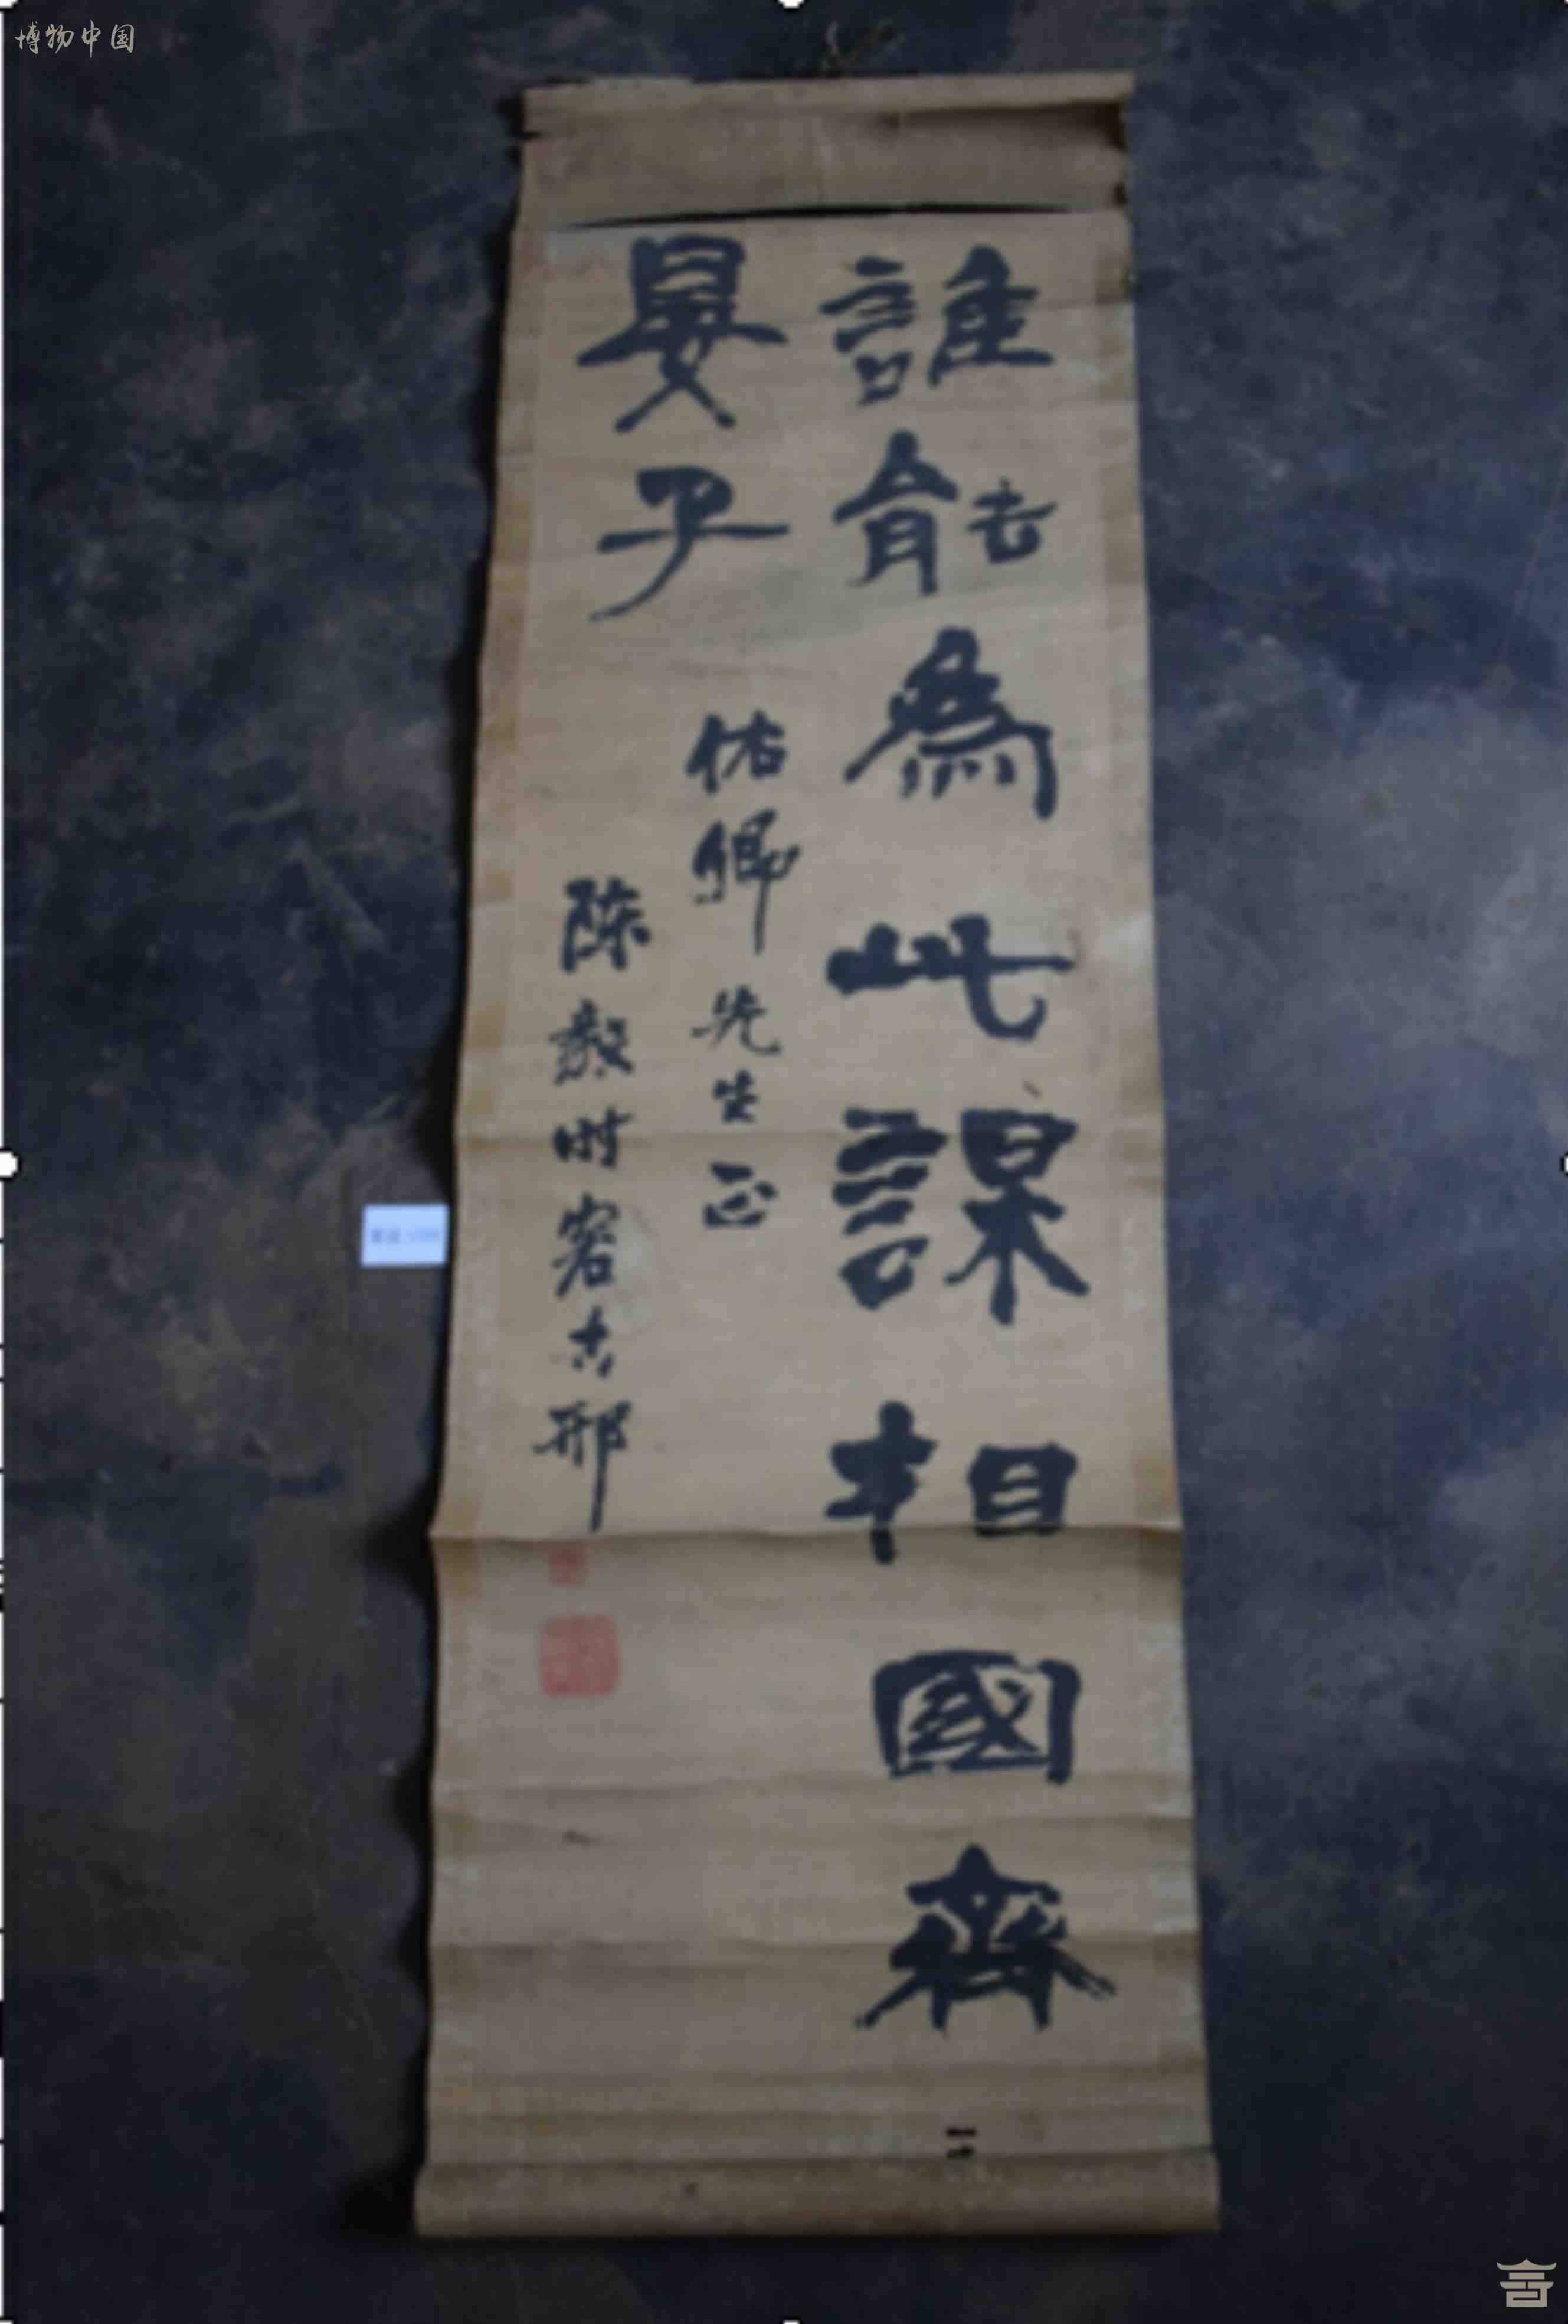 博物中国
誰能為此謀相國齊
晏子
佑卿先生正
陈毅时客古邢